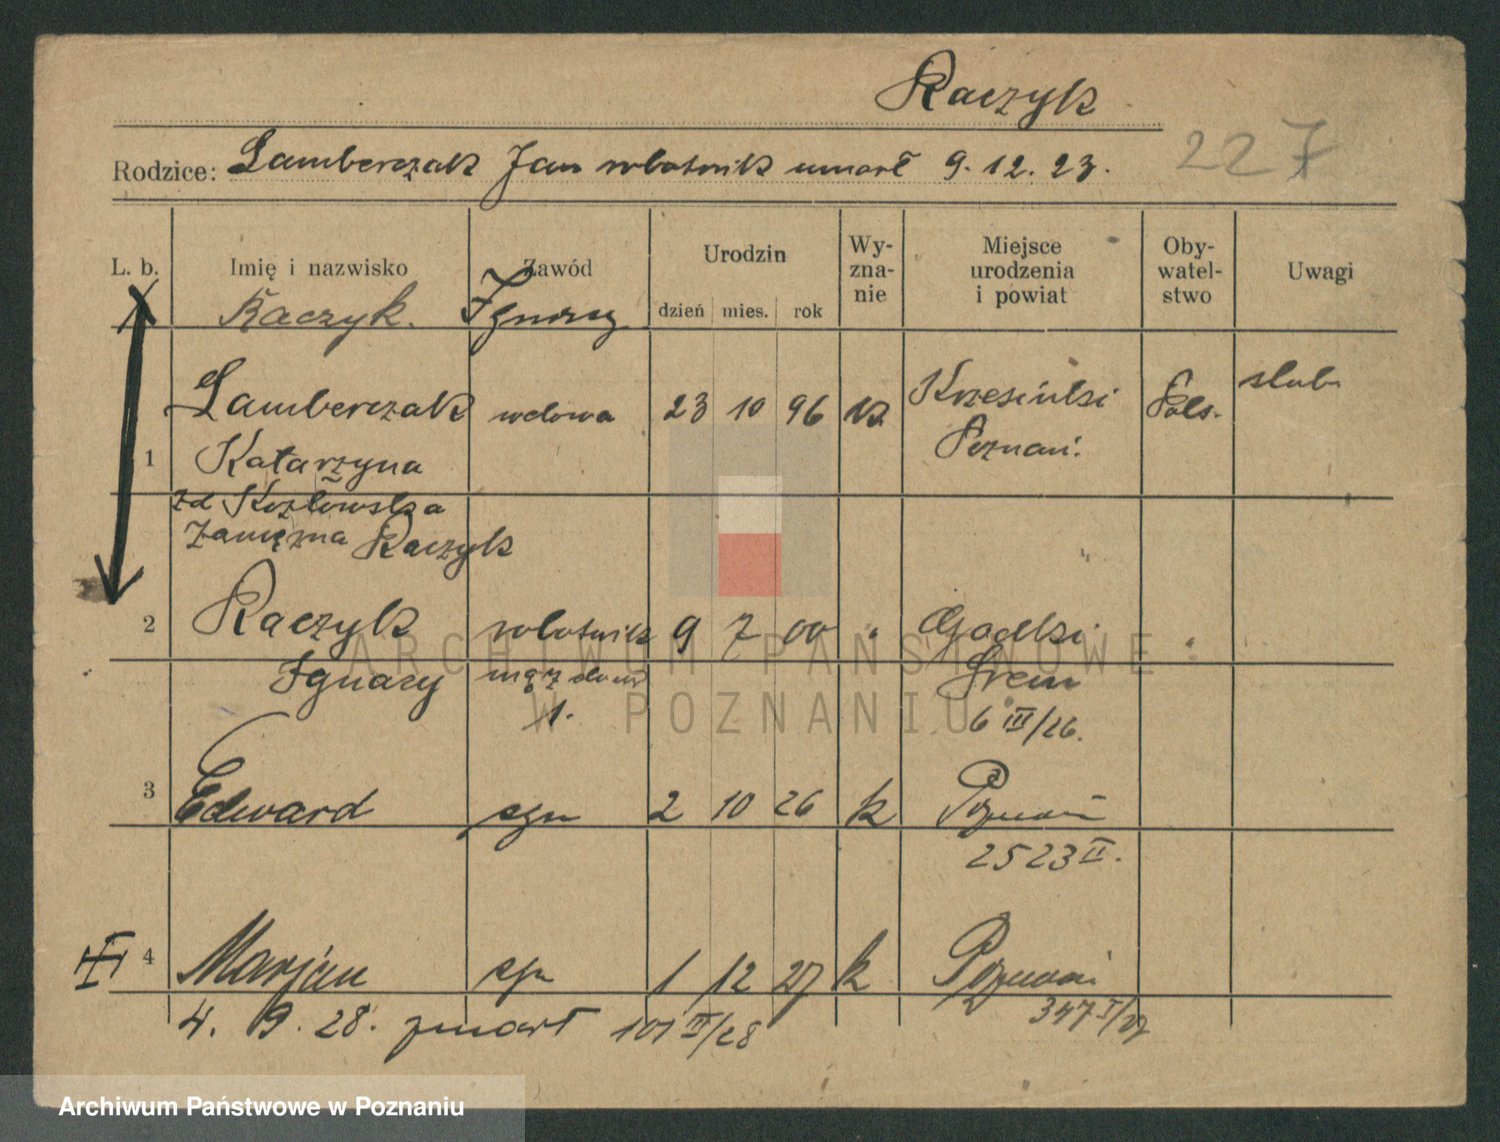 Raczyk
227
Rodzice: Lamberczak Jan robotnik umarł 9. 12. 23.
L. b. Imię i nazwisko Zawód Urodzin dzień mies. rok Wy-zna-nie Miejsce urodzenia i powiat Oby-watel-stwo Uwagi
Raczyk. Ignacy
Lamberczak wdowa 23 10 96 k Pols. slub
1 Katarzyna Poznań.
zd Kozłowska
Zamężna Raczyk
2 Raczyk robotnik 9 7 00 " Gądki "
Ignacy mąż do nr Śrem
1. 6 III/26.
3 Edward syn 2 10 26 k Poznań
2523 II.
4 Marjan syn 1 12 27 k Poznań
4. 9. 28. zmarł 101 III/28 347 I/27
ARCHIWUM PAŃSTWOWE
W POZNANIU
Archiwum Państwowe w Poznaniu